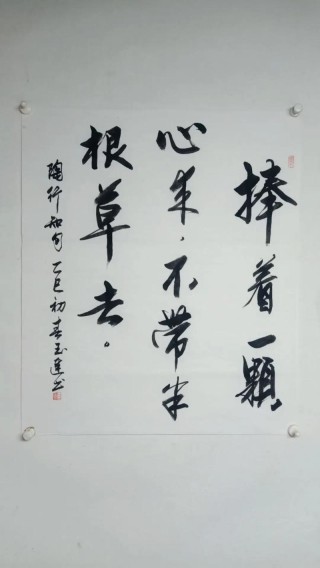 捧着一颗
心来，不带半
根草去。
陶行知句 乙巳初春玉莲书